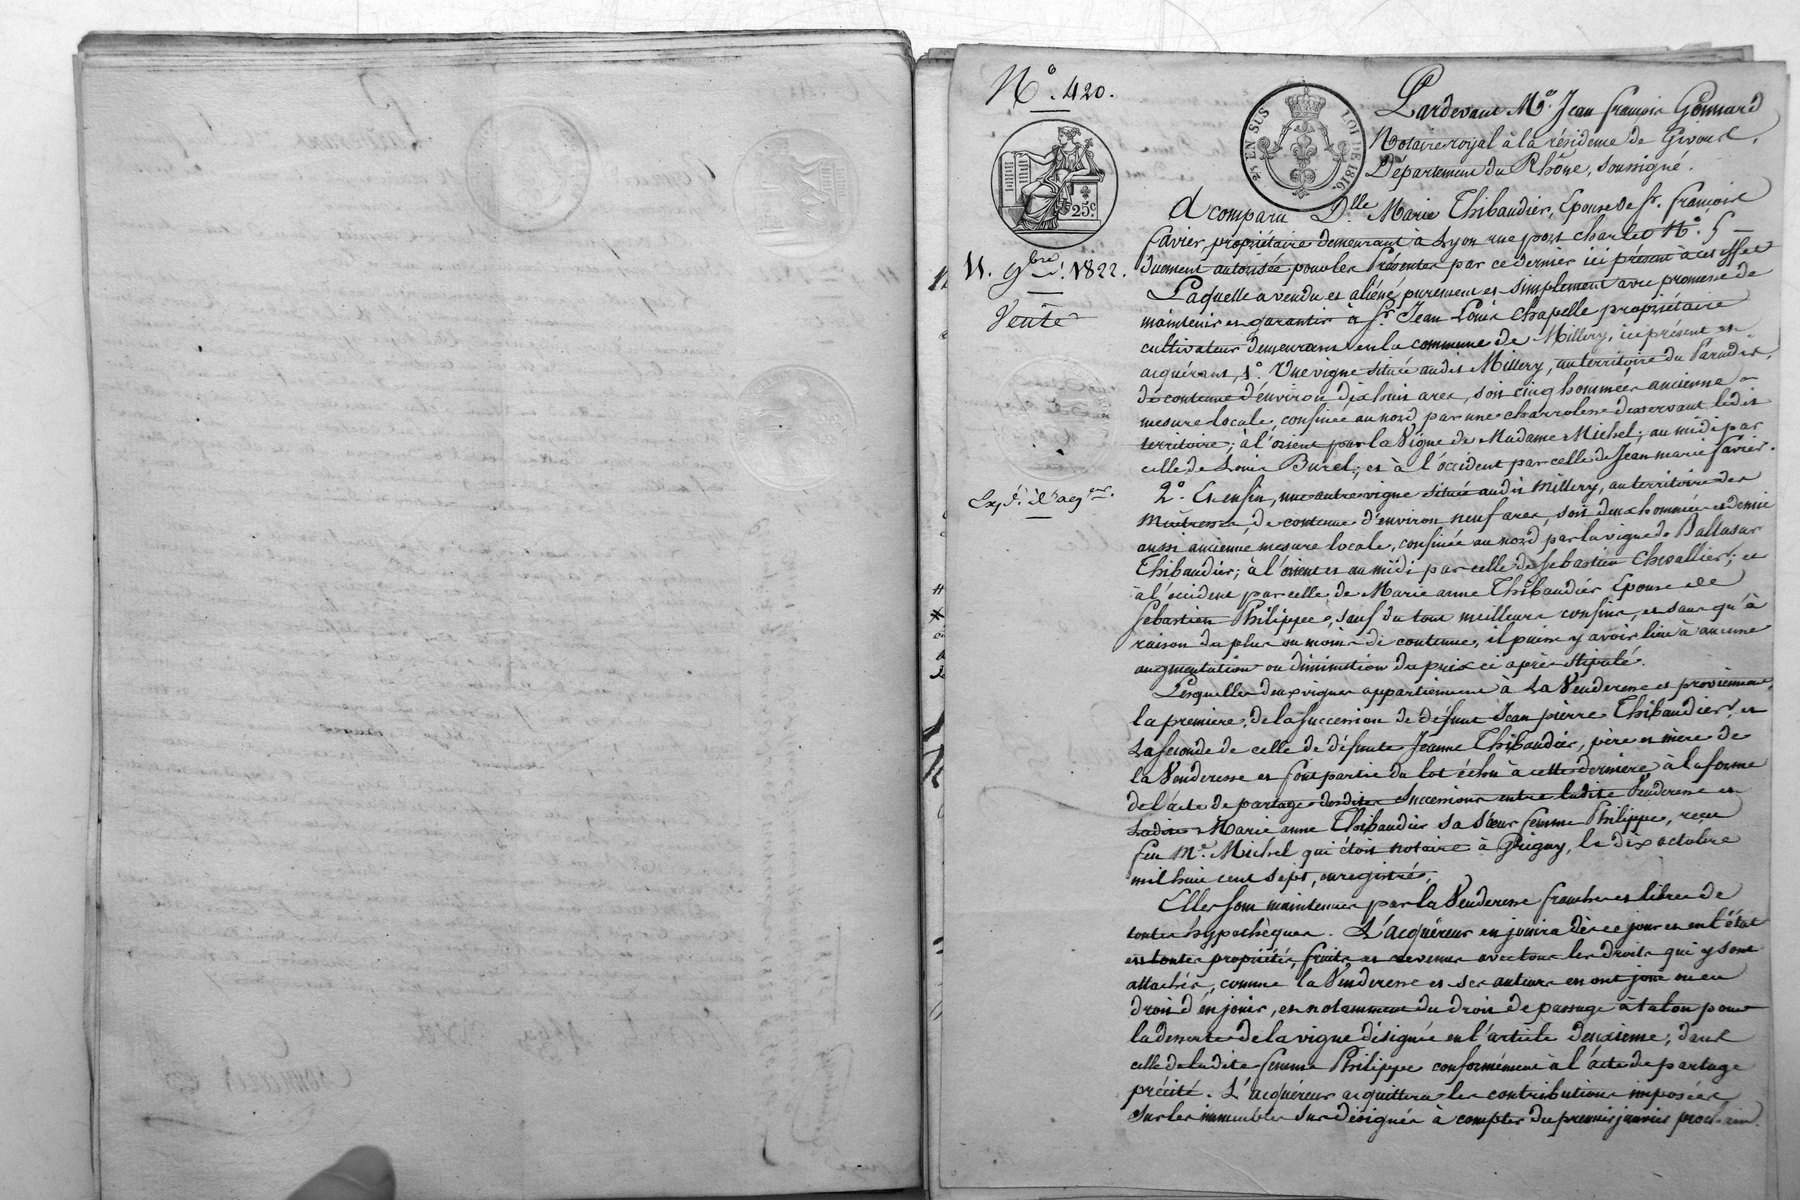 N.º 420.
25 EN SUS
LOI DE 1816.
25.c
11. 9bre. 1822.
Vente
Exp.é à l'acqér.eur.
Pardevant M.e Jean François Gonnard
Notaire royal à la résidence de Givors,
Département du Rhône, soussigné.
A comparu D.lle Marie Thibaudier, Epouse de S.r François
Favier, propriétaire demeurant à Lyon rue port charlet N.º 5
duement autorisée pour les présentes par ce dernier ici présent à cet effet
Laquelle a vendu et aliéné purement et simplement avec promesse de
maintenir et garantir à S.r Jean Louis Chapelle propriétaire
cultivateur demeurant en la commune de Millery, ici présent et
acquérant, 1.º Une vigne située audit Millery, au territoire du Paradis,
de contenue d'environ dix huit ares, soit cinq hommées ancienne
mesure locale, confinée au nord par une charroliere desservant ledit
territoire; à l'orient par la Vigne de Madame Michel; au midi par
celle de Louis Burel; et à l'occident par celle de Jean marie Favier.
2.º Et enfin, une autre vigne située audit Millery, au territoire des
de contenue d'environ neuf ares, soit deux hommées et demie
aussi ancienne mesure locale, confinée au nord par la vigne de Baltasar
Thibaudier; à l'orient et au midi par celle de Sebastien Chevallier; et
à l'occident par celle de Marie anne Thibaudier Epouse de
Sebastien Philippe, sauf du tout meilleurs confins, et sans qu'à
raison du plus ou moins de contenue, il puisse y avoir lieu à aucune
augmentation ou diminution du prix ci après stipulé.
Lesquelles deux vignes appartiennent à La Venderesse et proviennent,
la premiere, de la succession de défunt Jean pierre Thibaudier, et
La seconde de celle de défunte Jeanne Thibaudier, père et mère de
la Venderesse et font partie du lot échu à cette derniere à la forme
de l'acte de partage desdites Successions entre ladite Venderesse et
Ladite Marie anne Thibaudier sa Sœur femme Philippe, reçu
feu M.e Michel qui étoit notaire à Grigny, le dix octobre
mil huit cent sept, enregistré.
Elles sont maintenues par la Venderesse franches et libres de
toutes hypothèques. L'acquéreur en jouira dès ce jour et en l'état
en toutes propriétés, fruits et revenus avec tous les droits qui y sont
attachés, comme la Venderesse et ses auteurs en ont joui ou eu
droit d'en jouir, et notamment du droit de passage à talon pour
la desserte de la vigne désignée en l'article deuxieme; dans
celle de ladite femme Philippe conformément à l'acte de partage
précité. L'acquéreur acquittera les contributions imposées
sur les immeubles sus désignés à compter du premier janvier prochain.